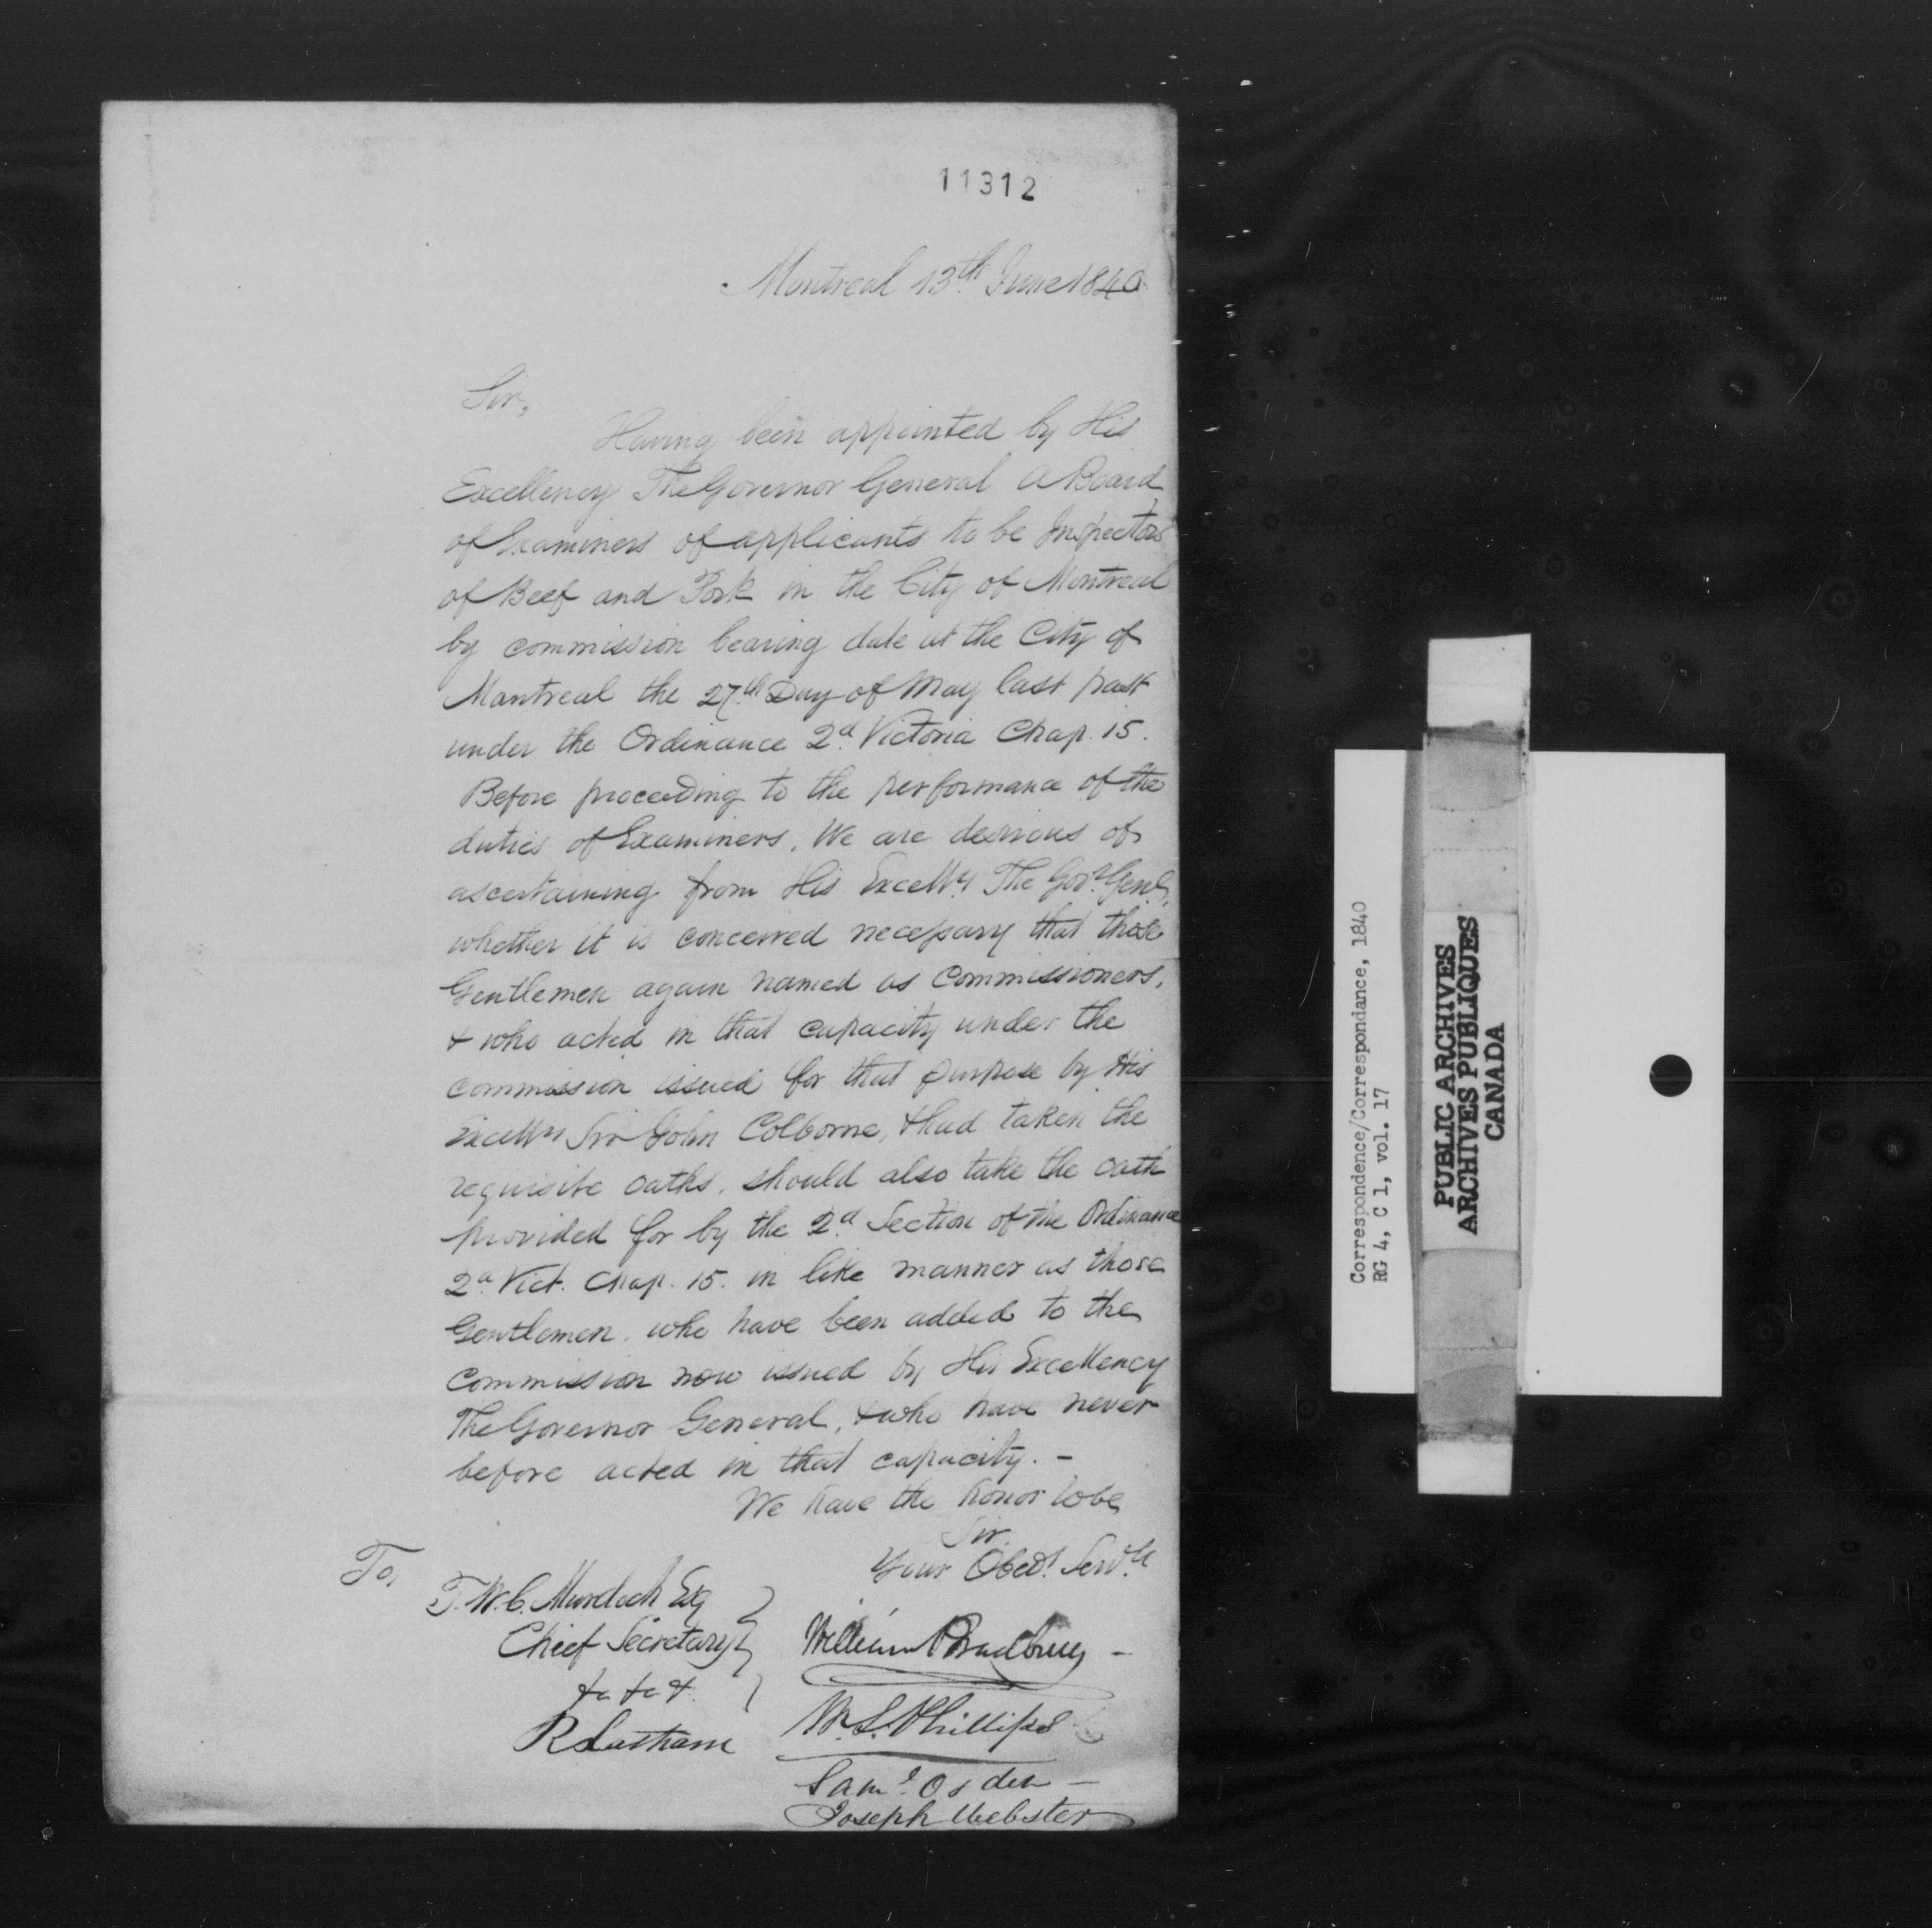 11312
Montreal 13th June 1840
Sir,
Having been appointed by His
Excellency The Governor General A Board
of Examiners of applicants to be Inspectors
of Beef and Pork in the City of Montreal
by commission bearing date at the City of
Montreal the 27th Day of May last past
under the Ordinance 2d Victoria Chap. 15.
Before proceeding to the performance of the
duties of Examiners, We are desirous of
ascertaining from His Excelly The Govr Genl,
whether it is conceived necessary that those
Gentlemen again named as Commissioners,
& who acted in that capacity under the
commission issued for that purpose by His
Excelly Sir John Colborne, & had taken the
requisite oaths, should also take the oath
provided for by the 2d Section of the Ordinance
2d Vict. Chap. 15. in like manner as those
Gentlemen who have been added to the
commission now issued by His Excellency
The Governor General, & who have never
before acted in that capacity. -
We have the honor to be
Sir
Your Obedt Servts
To,
T. W. C. Murdoch Esq
Chief Secretary
&c &c &
R Latham
William Bradbury -
W. S. Phillips
Saml
Joseph Webster
Correspondence/Correspondance, 1840
RG 4, C 1, vol. 17
PUBLIC ARCHIVES
ARCHIVES PUBLIQUES
CANADA